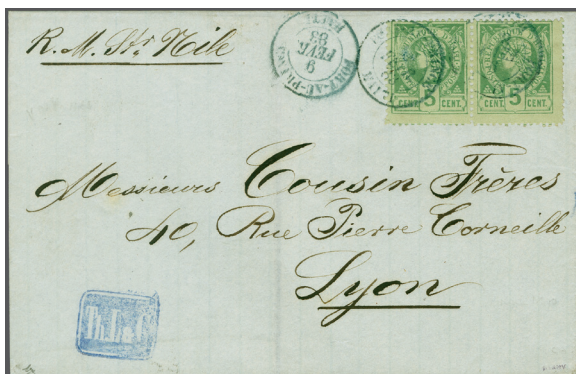 R. M. Str Nile
PORT-AU-PRINCE
9
FEVR
83
HAITI
CENT. 5 CENT.
CENT. 5 CENT.
Messieurs Cousin Frères
40, Rue Pierre Corneille
Lyon